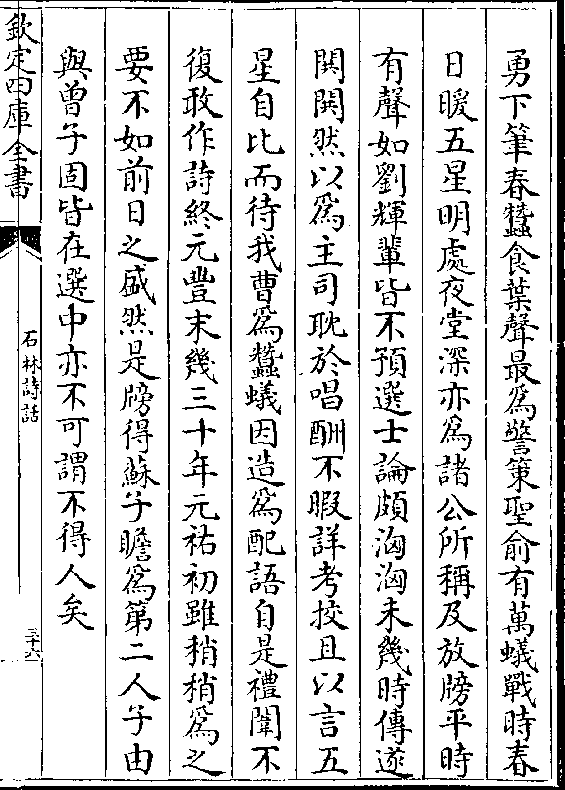 勇下筆春蠶食葉聲最爲警策聖俞有萬蟻戰時春
日暖五星明處夜堂深亦爲諸公所稱及放牓平時
有聲如劉輝輩皆不預選士論頗洶洶未幾時傳遂
鬨鬨然以爲主司耽於唱酬不暇詳考挍且以言五
星自比而待我曹爲蠶蟻因造爲配語自是禮闈不
復敢作詩終元豐末幾三十年元祐初雖稍稍爲之
要不如前日之盛然是牓得蘇子瞻爲第二人子由
與曾子固皆在選中亦不可謂不得人矣
欽定四庫全書
石林詩話
三十六